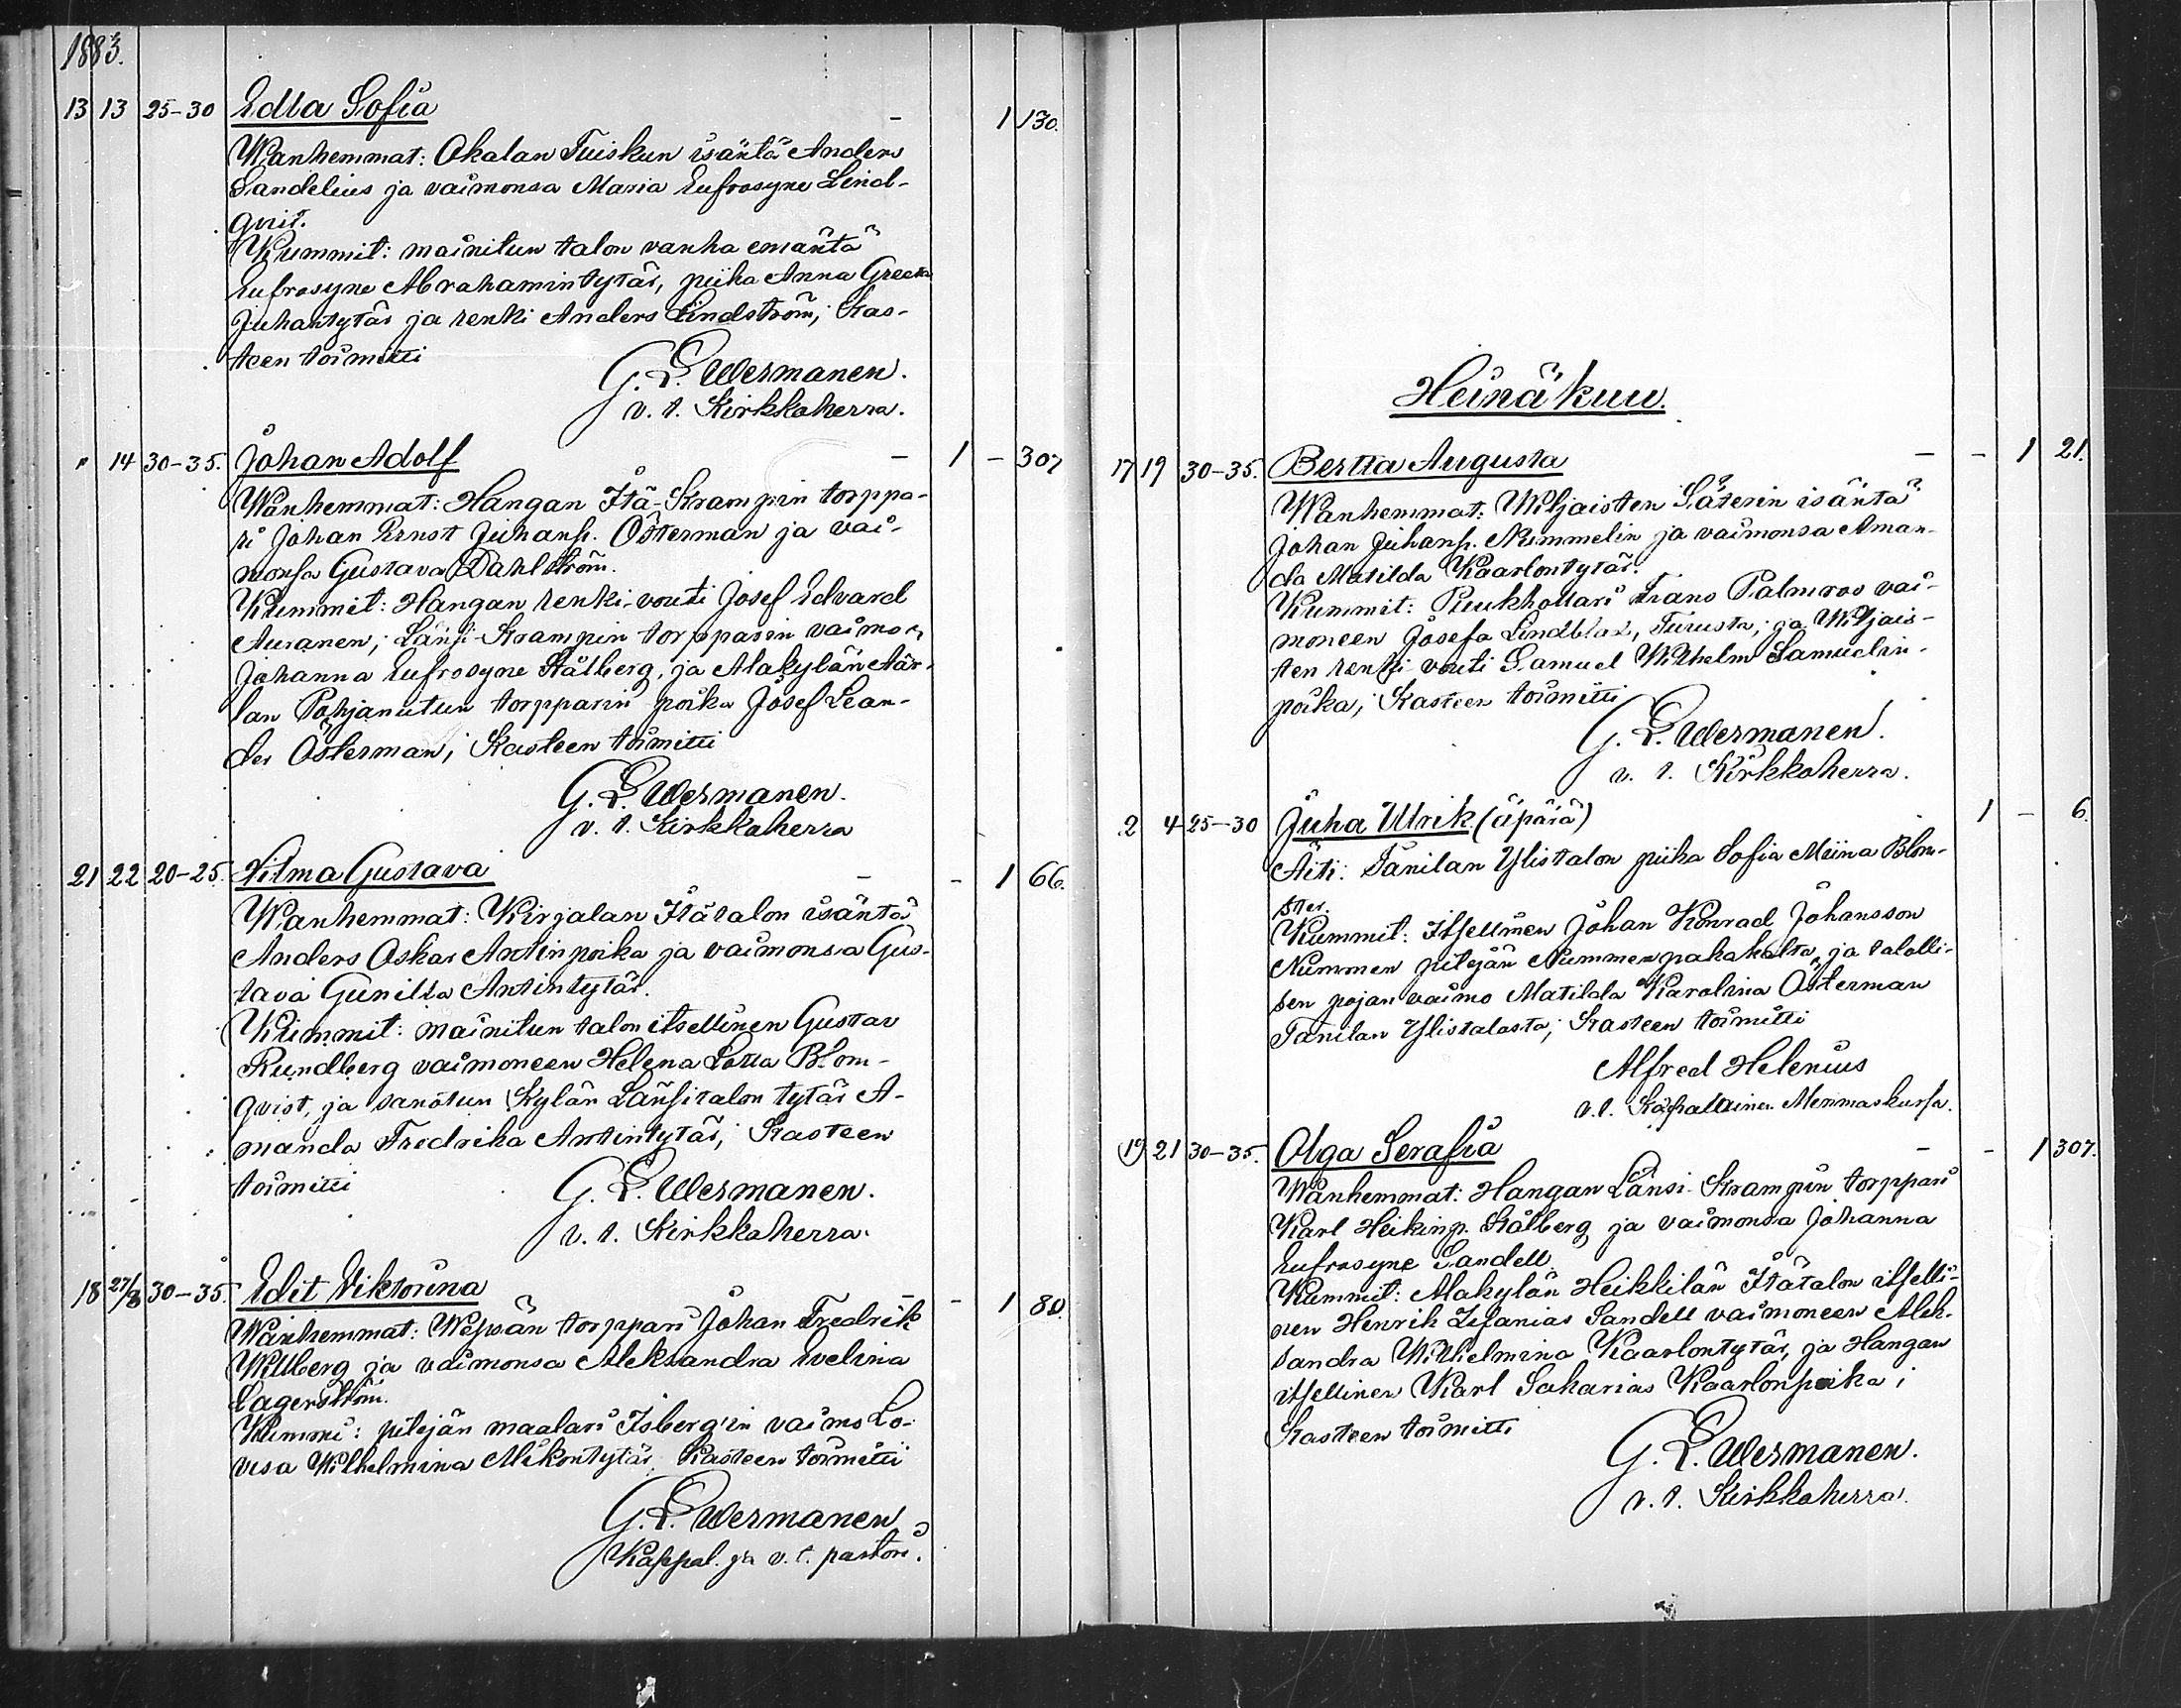 1883.
13 13 25-30 Edla Sofia - 1 130.
Wanhemmat: Okalan Tuiskun isäntä Anders
Sandelius ja vaimonsa Maria Eufrosyne Lind-
qvist.
Kummit: mainitun talon vanha emäntä
Eufrosyne Abrahamintytär, piika Anna Greeta
Juhantytär ja renki Anders Lindström; Kas-
teen toimitti
G. L. Wermanen.
v. t. Kirkkoherra.
" 14 30-35. Johan Adolf - 1 - 307
Wanhemmat: Hangan Itä-Krampin torppa-
ri Johan Ernst Juhanp. Österman ja vai-
monsa Gustava Dahlström.
Kummit: Hangan renki-vouti Josef Edvard
Auranen; Länsi-Krampin torpparin vaimo
Johanna Eufrosyne Stålberg, ja Alakylän Aär-
lan Pohjanutun torpparin poika Josef Lean-
der Österman; Kasteen toimitti
G. L. Wermanen.
v. t. Kirkkoherra
21 22 20-25. Vilma Gustava - - 1 66.
Wanhemmat: Kirjalan Itätalon isäntä
Anders Oskar Antinpoika ja vaimonsa Gus-
tava Gunilla Antintytär.
Kummit: mainitun talon itsellinen Gustav
Rundberg vaimoneen Helena Lovisa Blom-
qvist, ja sanotun Kylän Länsitalon tytär A-
manda Fredrika Antintytär; Kasteen
toimitti
G. L. Wermanen.
v. t. Kirkkoherra.
18 27/8 30-35. Edit Viktorina - - 1 80.
Wanhemmat: Wepsän torppari Johan Fredrik
Willberg ja vaimonsa Aleksandra Evelina
Lagerström.
Kummi: pitäjän maalari Isberg'in vaimo Lo-
visa Wilhelmina Mikontytär. Kasteen toimitti
G. L. Wermanen
Kappal. ja v. t. pastori.
Heinäkuu.
17 19 30-35. Bertta Augusta - - 1 21.
Wanhemmat: Wiljaisten Säterin isäntä
Johan Juhanp. Nummelin ja vaimonsa Aman-
da Matilda Kaarlontytär.
Kummit: Puukhollari Frans Palmroos vai-
moneen Josefa Lindblad, Turusta; ja Wiljais-
ten renki vouti Samuel Wilhelm Samuelin-
poika; Kasteen toimitti
G. L. Wermanen.
v. t. Kirkkoherra.
2 4 25-30 Juha Ulrik (äpärä) 1 - 6.
Äiti: Tanilan Ylistalon piika Sofia Miina Blom-
ster.
Kummit: Itsellinen Johan Konrad Johansson
Nummen pitäjän Nummenpakakalta, ja talolli-
sen pojan vaimo Matilda Karolina Österman
Tanilan Ylistalosta; Kasteen toimitti
Alfred Helenius
v. t. Kappalainen Merimaskussa.
19 21 30-35. Olga Serafia - - 1 307.
Wanhemmat: Hangan Länsi-Krampin torppari
Karl Heikinp. Stålberg ja vaimonsa Johanna
Eufrosyne Sandell.
Kummit: Alakylän Heikkilän Itätalon itselli-
nen Henrik Zefanias Sandell vaimoneen Alek-
sandra Wilhelmina Kaarlontytär, ja Hangan
itsellinen Karl Sakarias Kaarlonpoika;
Kasteen toimitti
G. L. Wermanen.
v. t. Kirkkoherra.